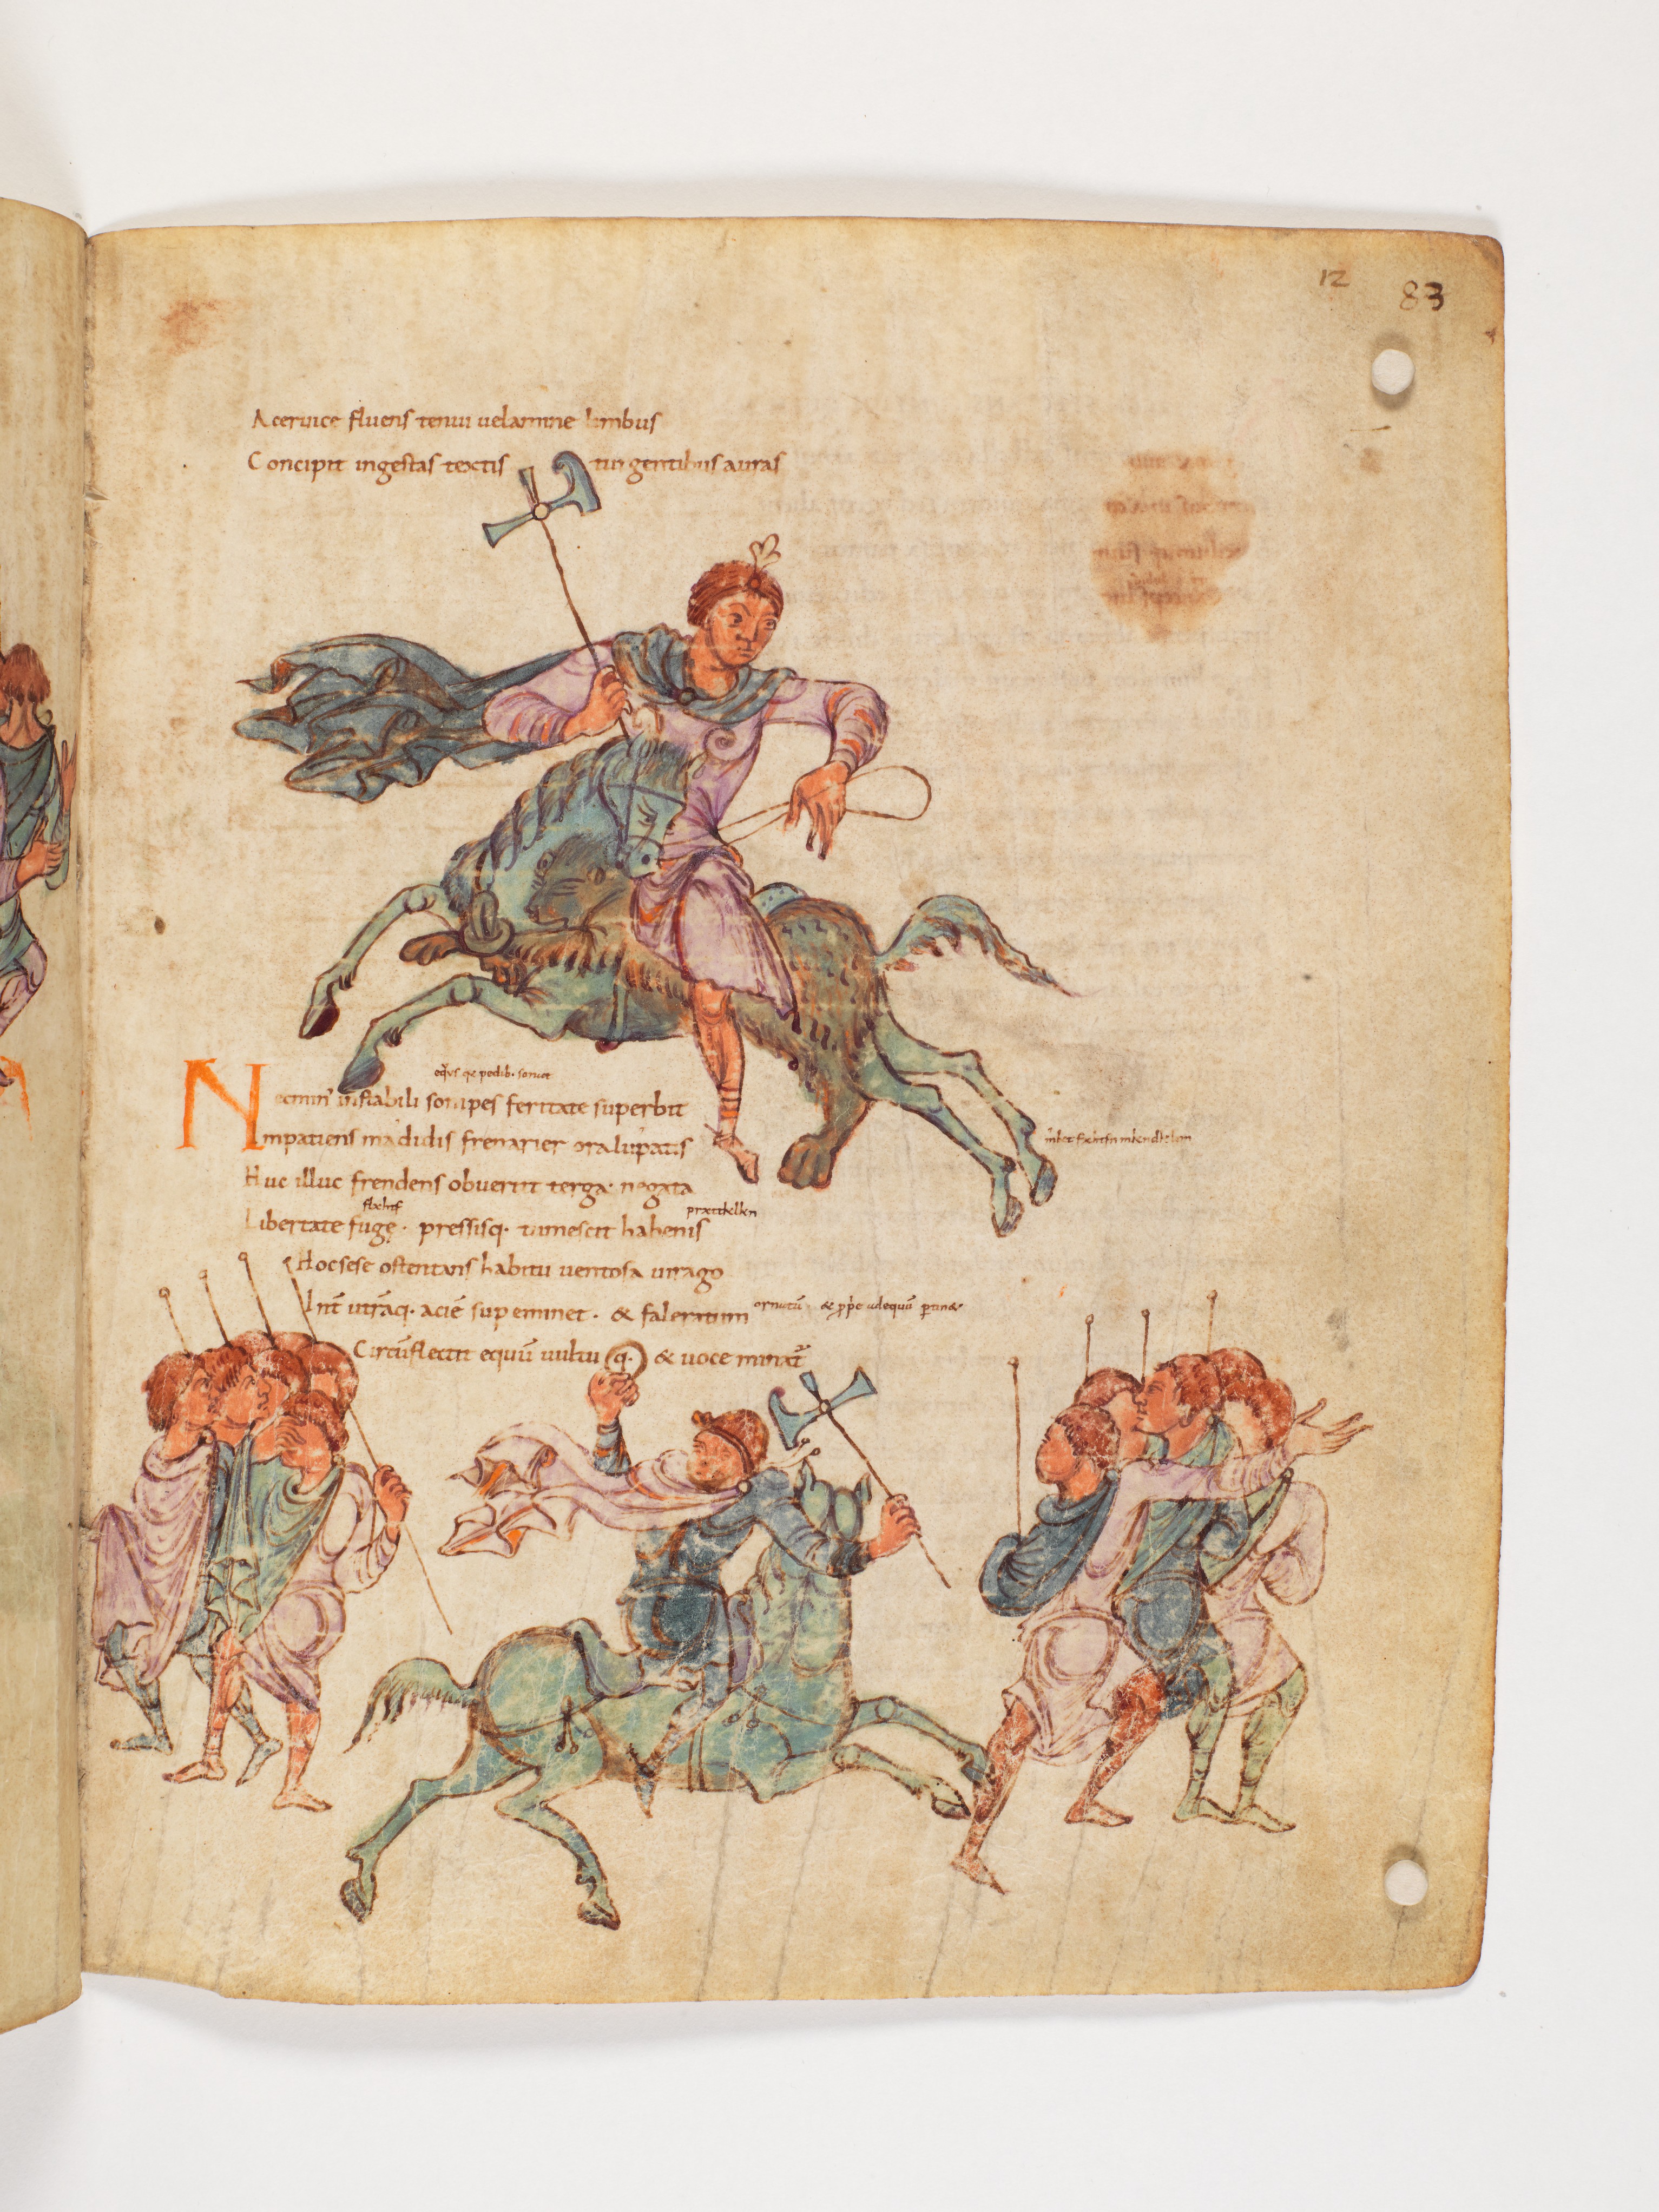 12 83
A ceruice fluens tenui uelamine limbus
Concipit ingestas textis turgentibus auras
equs qe pedib. sonat
Necmin' instabili sonipes feritate superbit
Impatiens madidis frenarier ora lupatis
Huc illuc frendens obuertit terga negata
flahtf
Libertate fuge. pressisq. tumescit habenis
Hoc sese ostentans habitu uentosa uirago
Int̄ utrāq. aciē sup eminet. & faleratum ornatū
Circūflectit equū uultu q. & uoce minat̄